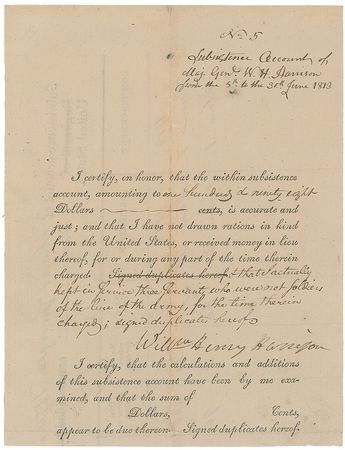 No. 5
Subsistence Account of
Maj. Genl. W. H. Harrison
from the 5th to the 30th June 1813
I certify, on honor, that the within subsistence
account, amounting to one hundred & ninety eight
Dollars cents, is accurate and
just; and that I have not drawn rations in kind
from the United States, or received money in lieu
thereof, for or during any part of the time therein
charged. Signed duplicates hereof & that I actually
kept in service three servants, who were not soldiers
of the line of the army, for the term therein
charged; signed duplicate hereof
Willm Henry Harrison
I certify, that the calculations and additions
of this subsistence account have been by me exa-
mined, and that the sum of
Dollars, Cents,
appear to be due thereon. Signed duplicates hereof.